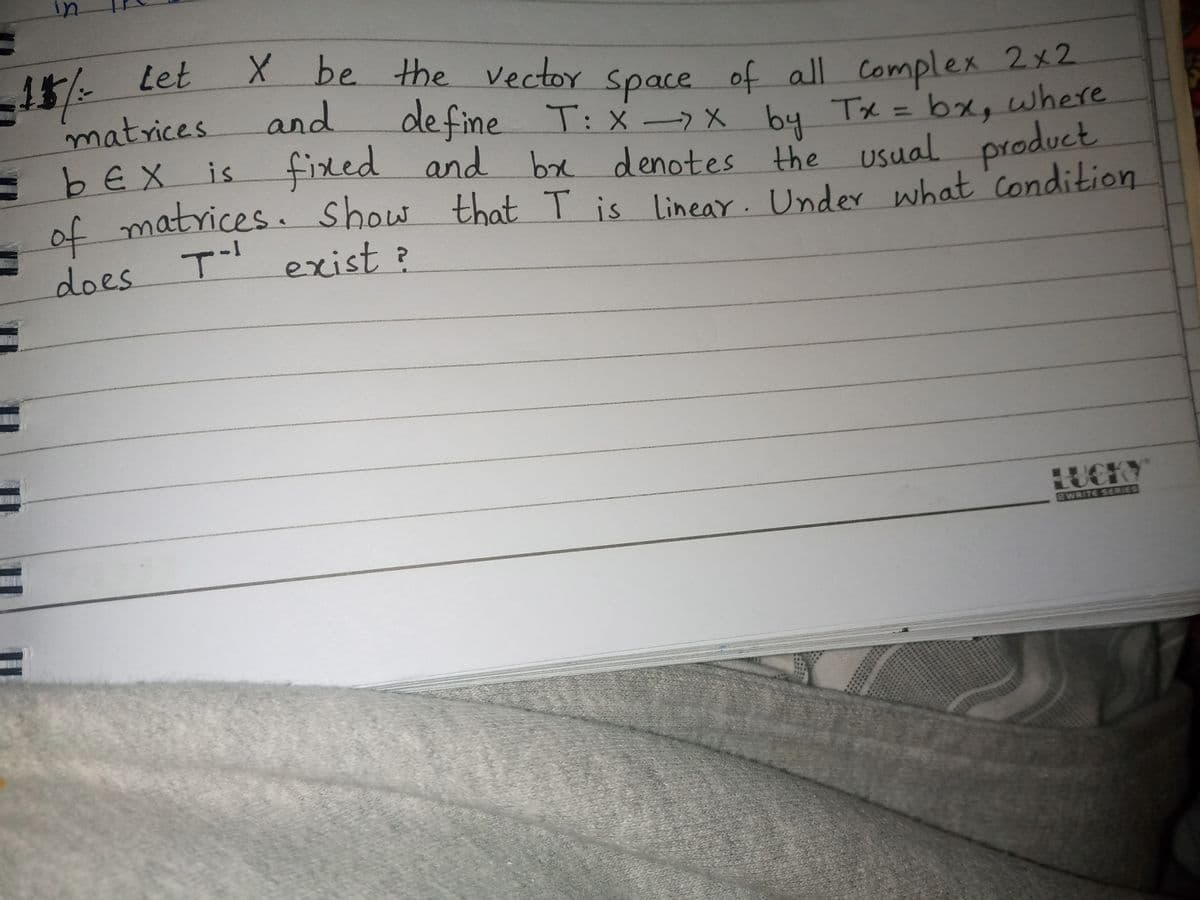 in
15/:- Let X be the vector space of all complex 2x2
matrices and define T: X → X by Tx = bx, where
b ∈ X is fixed and bx denotes the usual product
of matrices. Show that T is linear. Under what condition
does T⁻¹ exist ?
LUCKY
WRITE SERIES